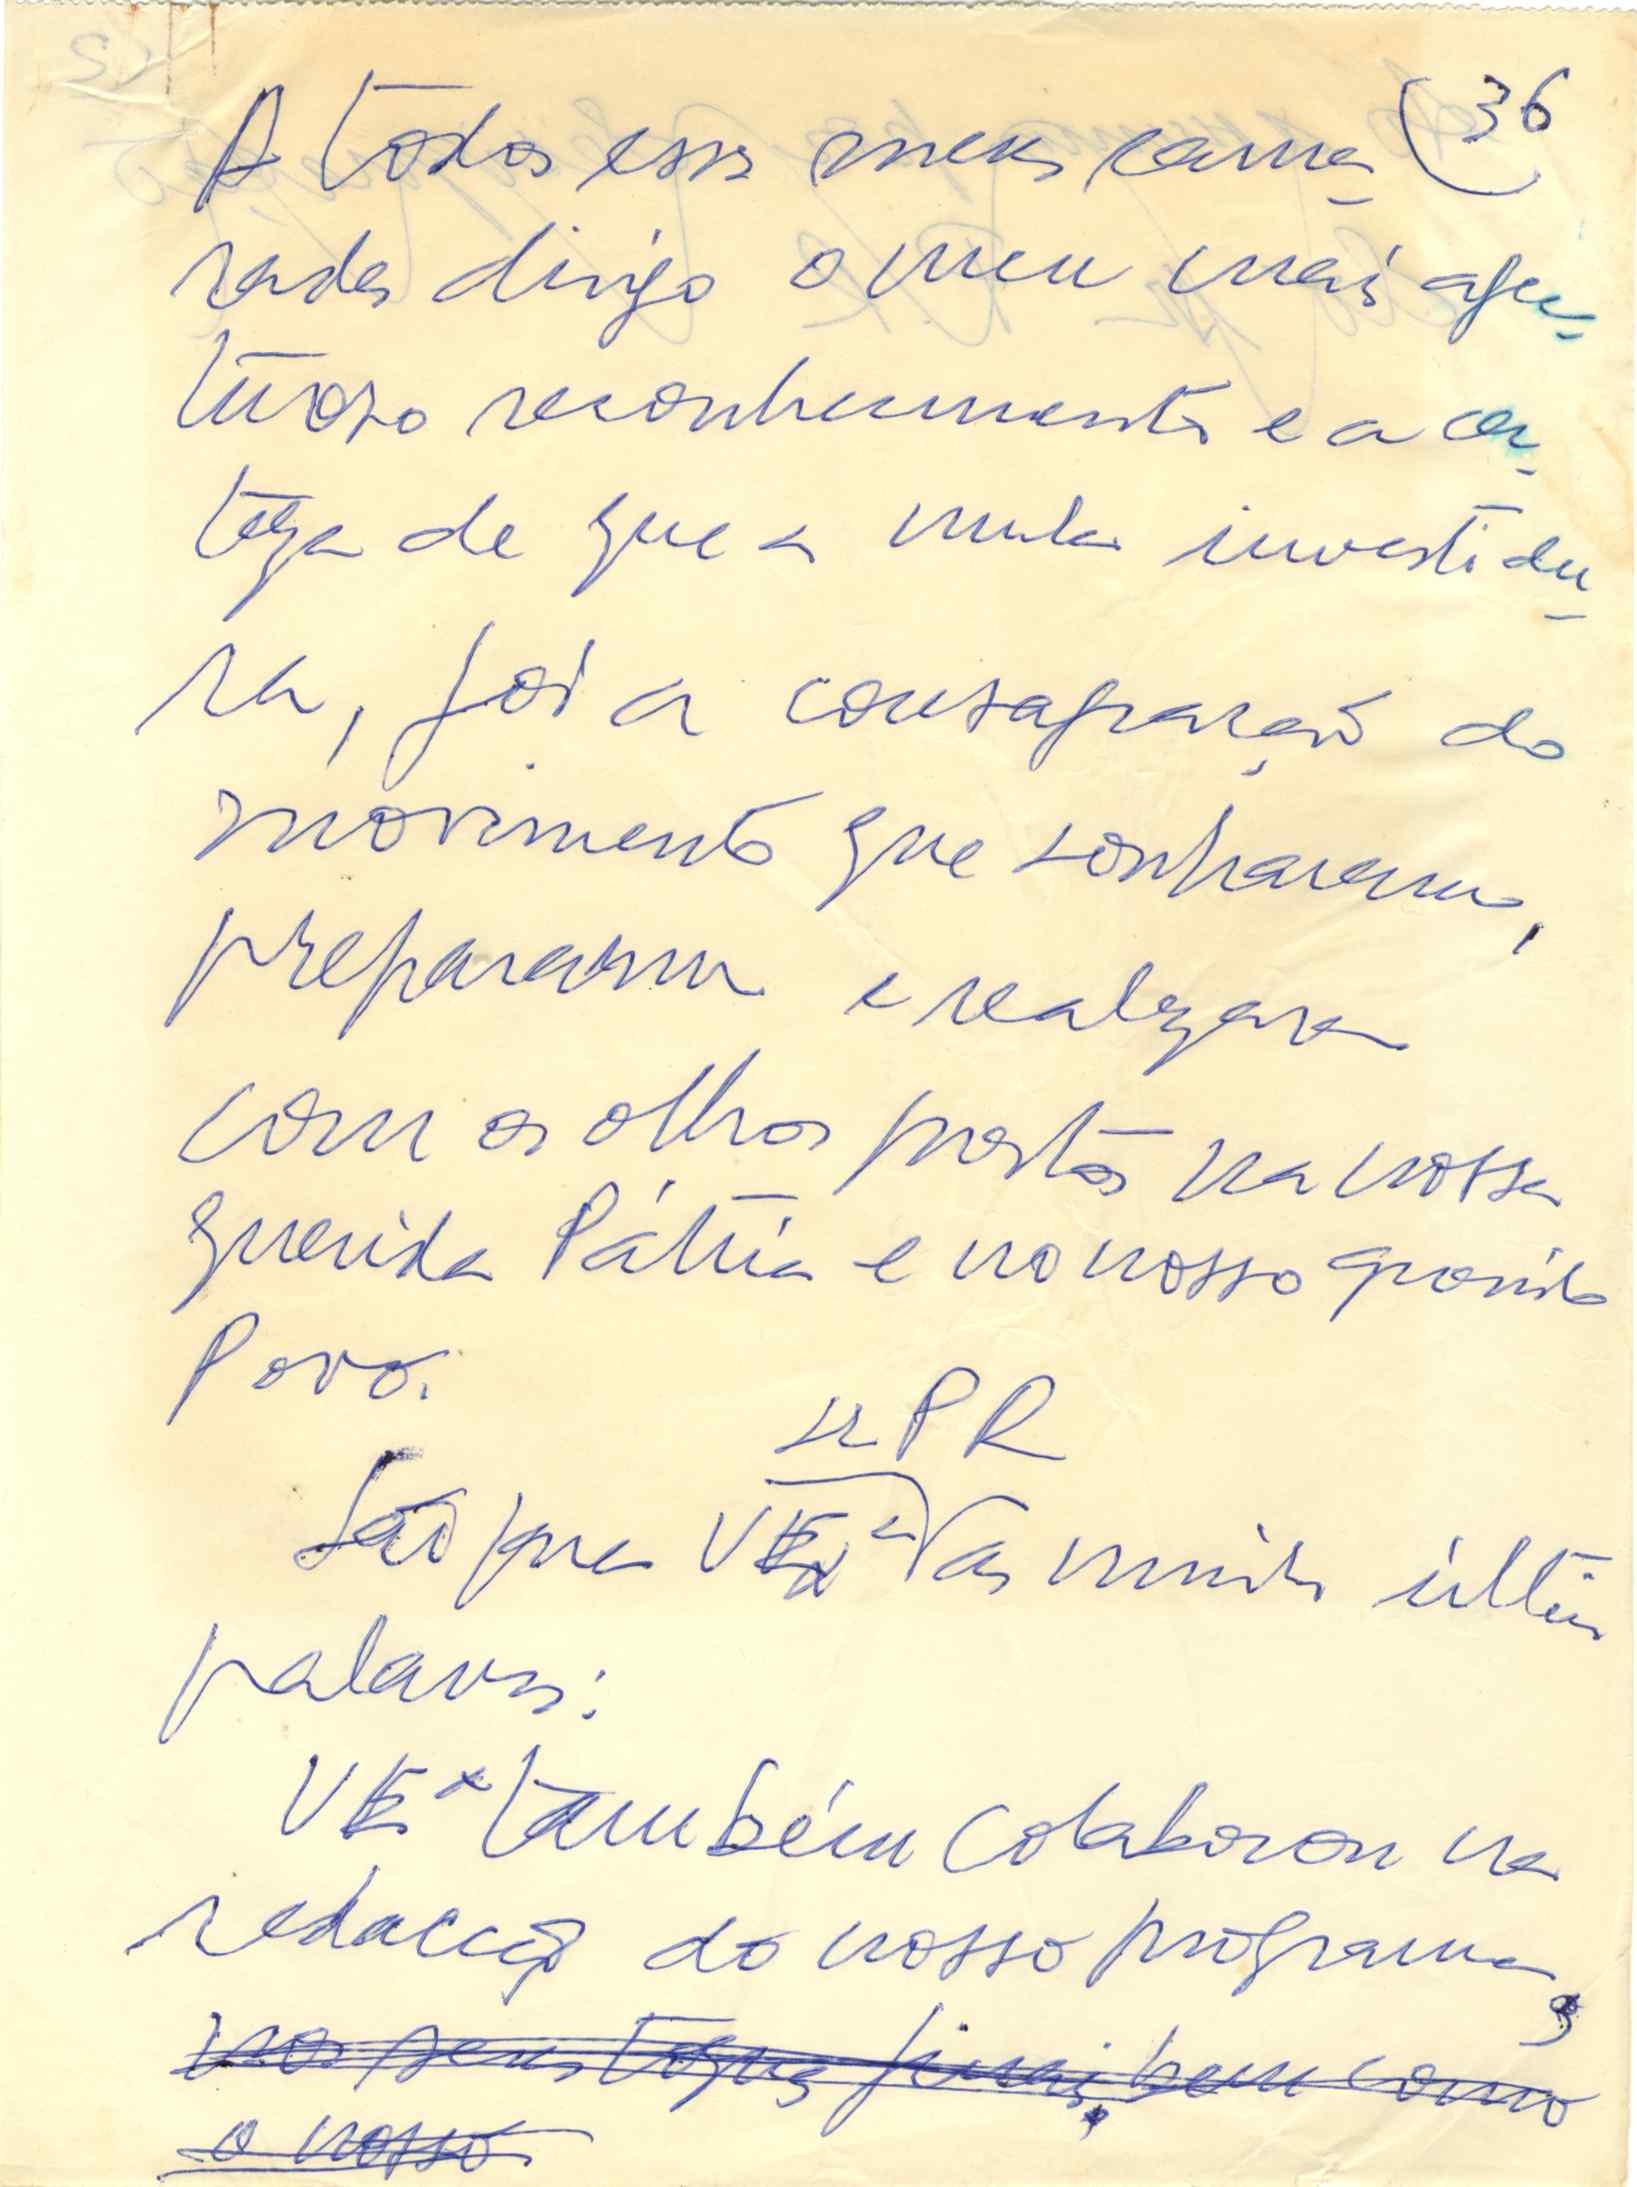 36
A todos esses meus cama-
radas dirijo o meu mais afec-
tuoso reconhecimento e a cer-
teza de que a minha investidu-
ra, foi a consagração do
movimento que sonharam,
prepararam e realizaram
com os olhos postos na nossa
querida Pátria e no nosso querido
Povo.
sr PR
São para VExª as minhas últimas
palavras:
VExª também colaborou na
redacção do nosso programa,
nos seus toques finais, bem como
o nosso